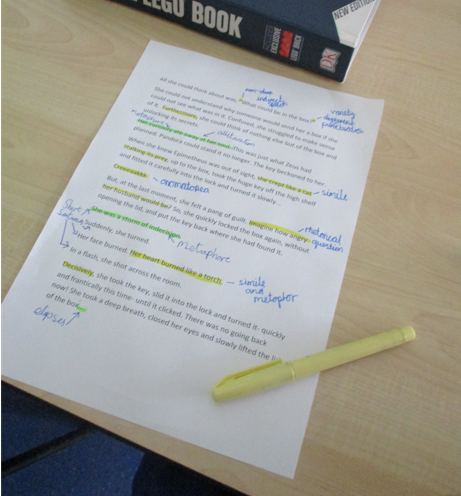 LEGO BOOK
NEW EDITION
DK
All she could think about was, "What could be in the box?"
She could not understand why someone would send her a box if she
could not see what was in it. Confused, she struggled to make sense
of it. Furthermore, she could think of nothing else but the box and
unlocking its secrets.
This was just what Zeus had
planned. Pandora could stand it no longer. The key beckoned to her.
When she knew Epimetheus was out of sight, she crept like a cat
stalking its prey, up to the box, took the huge key off the high shelf
and fitted it carefully into the lock and turned it slowly...
Creeeaakkk
But, at the last moment, she felt a pang of guilt. Imagine how angry
her husband would be? So, she quickly locked the box again, without
opening the lid, and put the key back where she had found it.
She was a storm of indecision.
Suddenly, she turned.
Her face burned. Her heart burned like a torch.
In a flash, she shot across the room.
Decisively, she took the key, slid it into the lock and turned it- quickly
and frantically this time- until it clicked. There was no going back
now! She took a deep breath, closed her eyes and slowly lifted the
of the box
indirect
simile
onomatopea
rhetorical
question
metaphore
Short
simile
and
metopfor
elipses